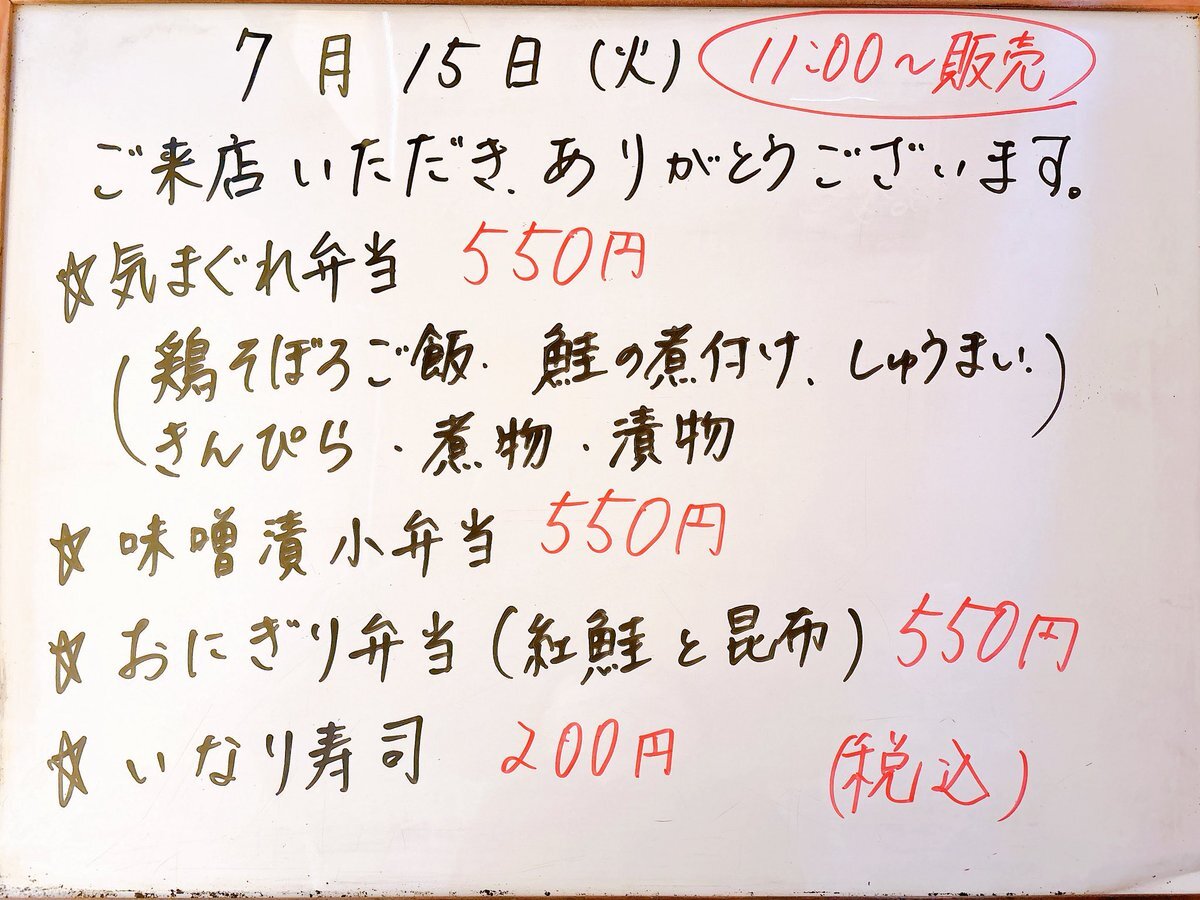 7月15日(火) 11:00~販売
ご来店いただき、ありがとうございます。
☆気まぐれ弁当 550円
(鶏そぼろご飯、鮭の煮付け、しゅうまい、
きんぴら・煮物・漬物)
☆味噌漬小弁当 550円
☆おにぎり弁当(紅鮭と昆布) 550円
☆いなり寿司 200円 (税込)